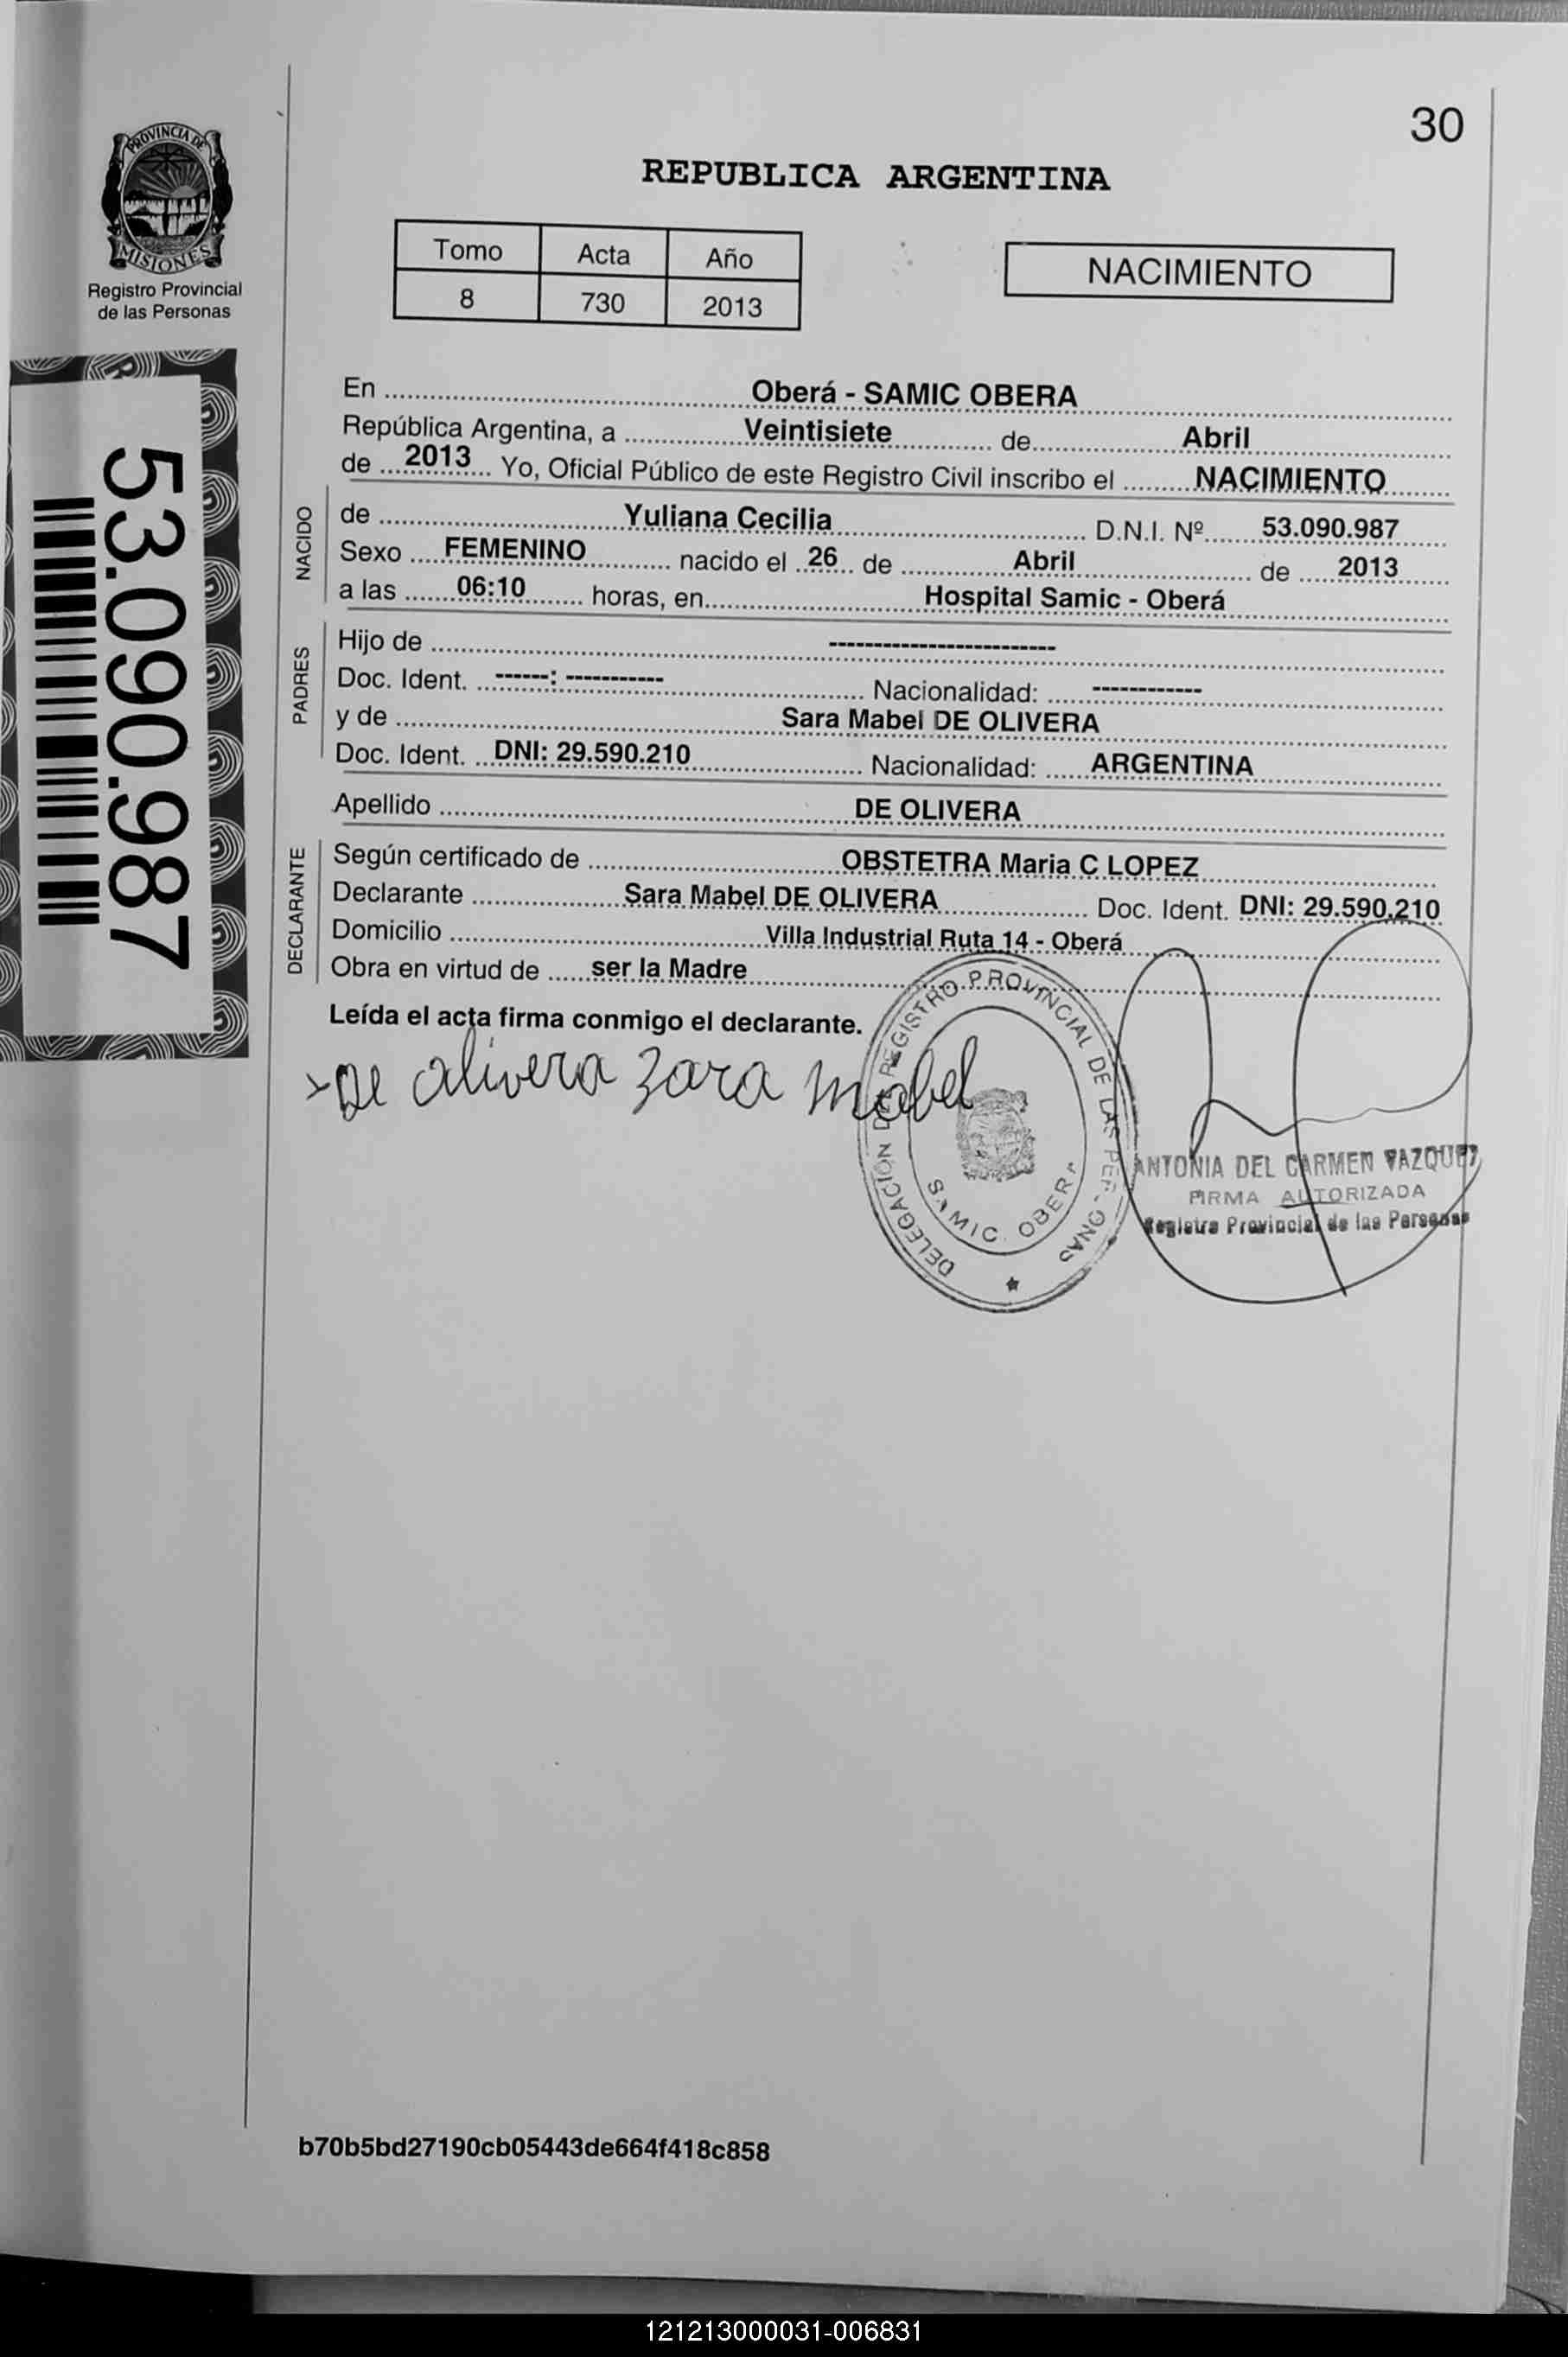 30
PROVINCIA DE
MISIONES
Registro Provincial
de las Personas
REPUBLICA ARGENTINA
Tomo Acta Año
8 730 2013
NACIMIENTO
53.090.987
En Oberá - SAMIC OBERA
República Argentina, a Veintisiete de Abril
de 2013 Yo, Oficial Público de este Registro Civil inscribo el NACIMIENTO
NACIDO
de Yuliana Cecilia D.N.I. Nº 53.090.987
Sexo FEMENINO nacido el 26 de Abril de 2013
a las 06:10 horas, en Hospital Samic - Oberá
PADRES
Hijo de -------------------------
Doc. Ident. ------: ----------- Nacionalidad: ------------
y de Sara Mabel DE OLIVERA
Doc. Ident. DNI: 29.590.210 Nacionalidad: ARGENTINA
Apellido DE OLIVERA
DECLARANTE
Según certificado de OBSTETRA Maria C LOPEZ
Declarante Sara Mabel DE OLIVERA Doc. Ident. DNI: 29.590.210
Domicilio Villa Industrial Ruta 14 - Oberá
Obra en virtud de ser la Madre
Leída el acta firma conmigo el declarante.
De olivera Zara mabel
DELEGACIÓN DEL REGISTRO PROVINCIAL DE LAS PERSONAS
SAMIC OBERA
ANTONIA DEL CARMEN VAZQUEZ
FIRMA AUTORIZADA
Registro Provincial de las Personas
b70b5bd27190cb05443de664f418c858
121213000031-006831